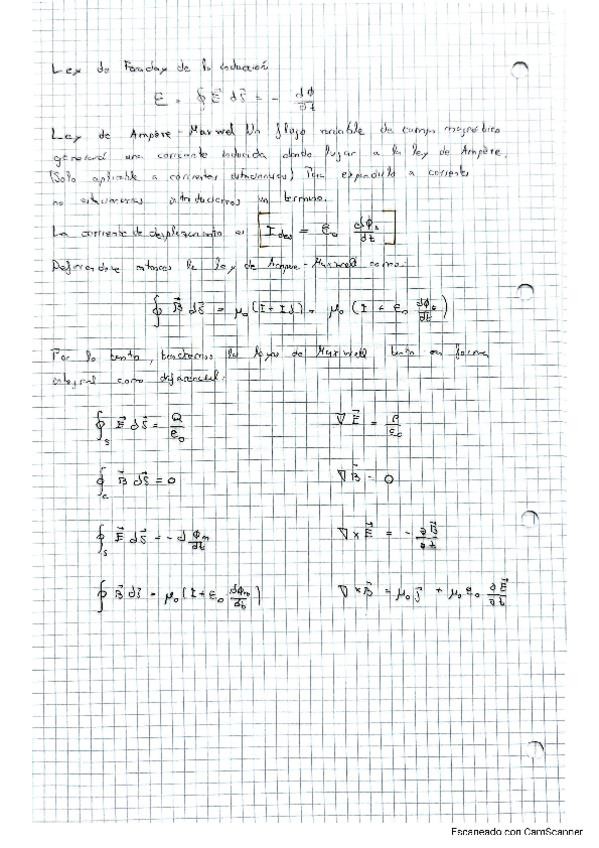 Ley de Faraday de la inducción
ε = ∮ E⃗ ds⃗ = - dϕ/dt
Ley de Ampère-Maxwel Un flujo variable de campo magnético
generará una corriente inducida dando lugar a la ley de Ampère.
(Solo aplicable a corrientes estacionarias) Para expandirlo a corrientes
no estacionarias introducimos un termino.
La corriente de desplazamiento es [I des = ε₀ dϕₑ/dt]
Definiendose entonces la ley de Ampere-Maxwell como:
∮ B⃗ ds⃗ = μ₀ (I + Id) = μ₀ (I + ε₀ dϕₑ/dt)
Por lo tanto, tendremos las leyes de Maxwell tanto en forma
integral como diferencial:
∮s E⃗ ds⃗ = Q/ε₀ ∇ E⃗ = ρ/ε₀
∮c B⃗ ds⃗ = 0 ∇ B⃗ = 0
∮s E⃗ ds⃗ = - dϕm/dt ∇×E⃗ = - ∂B⃗/∂t
∮ B⃗ ds⃗ = μ₀ (I + ε₀ dϕm/dt) ∇×B⃗ = μ₀ j⃗ + μ₀ ε₀ ∂E⃗/∂t
Escaneado con CamScanner